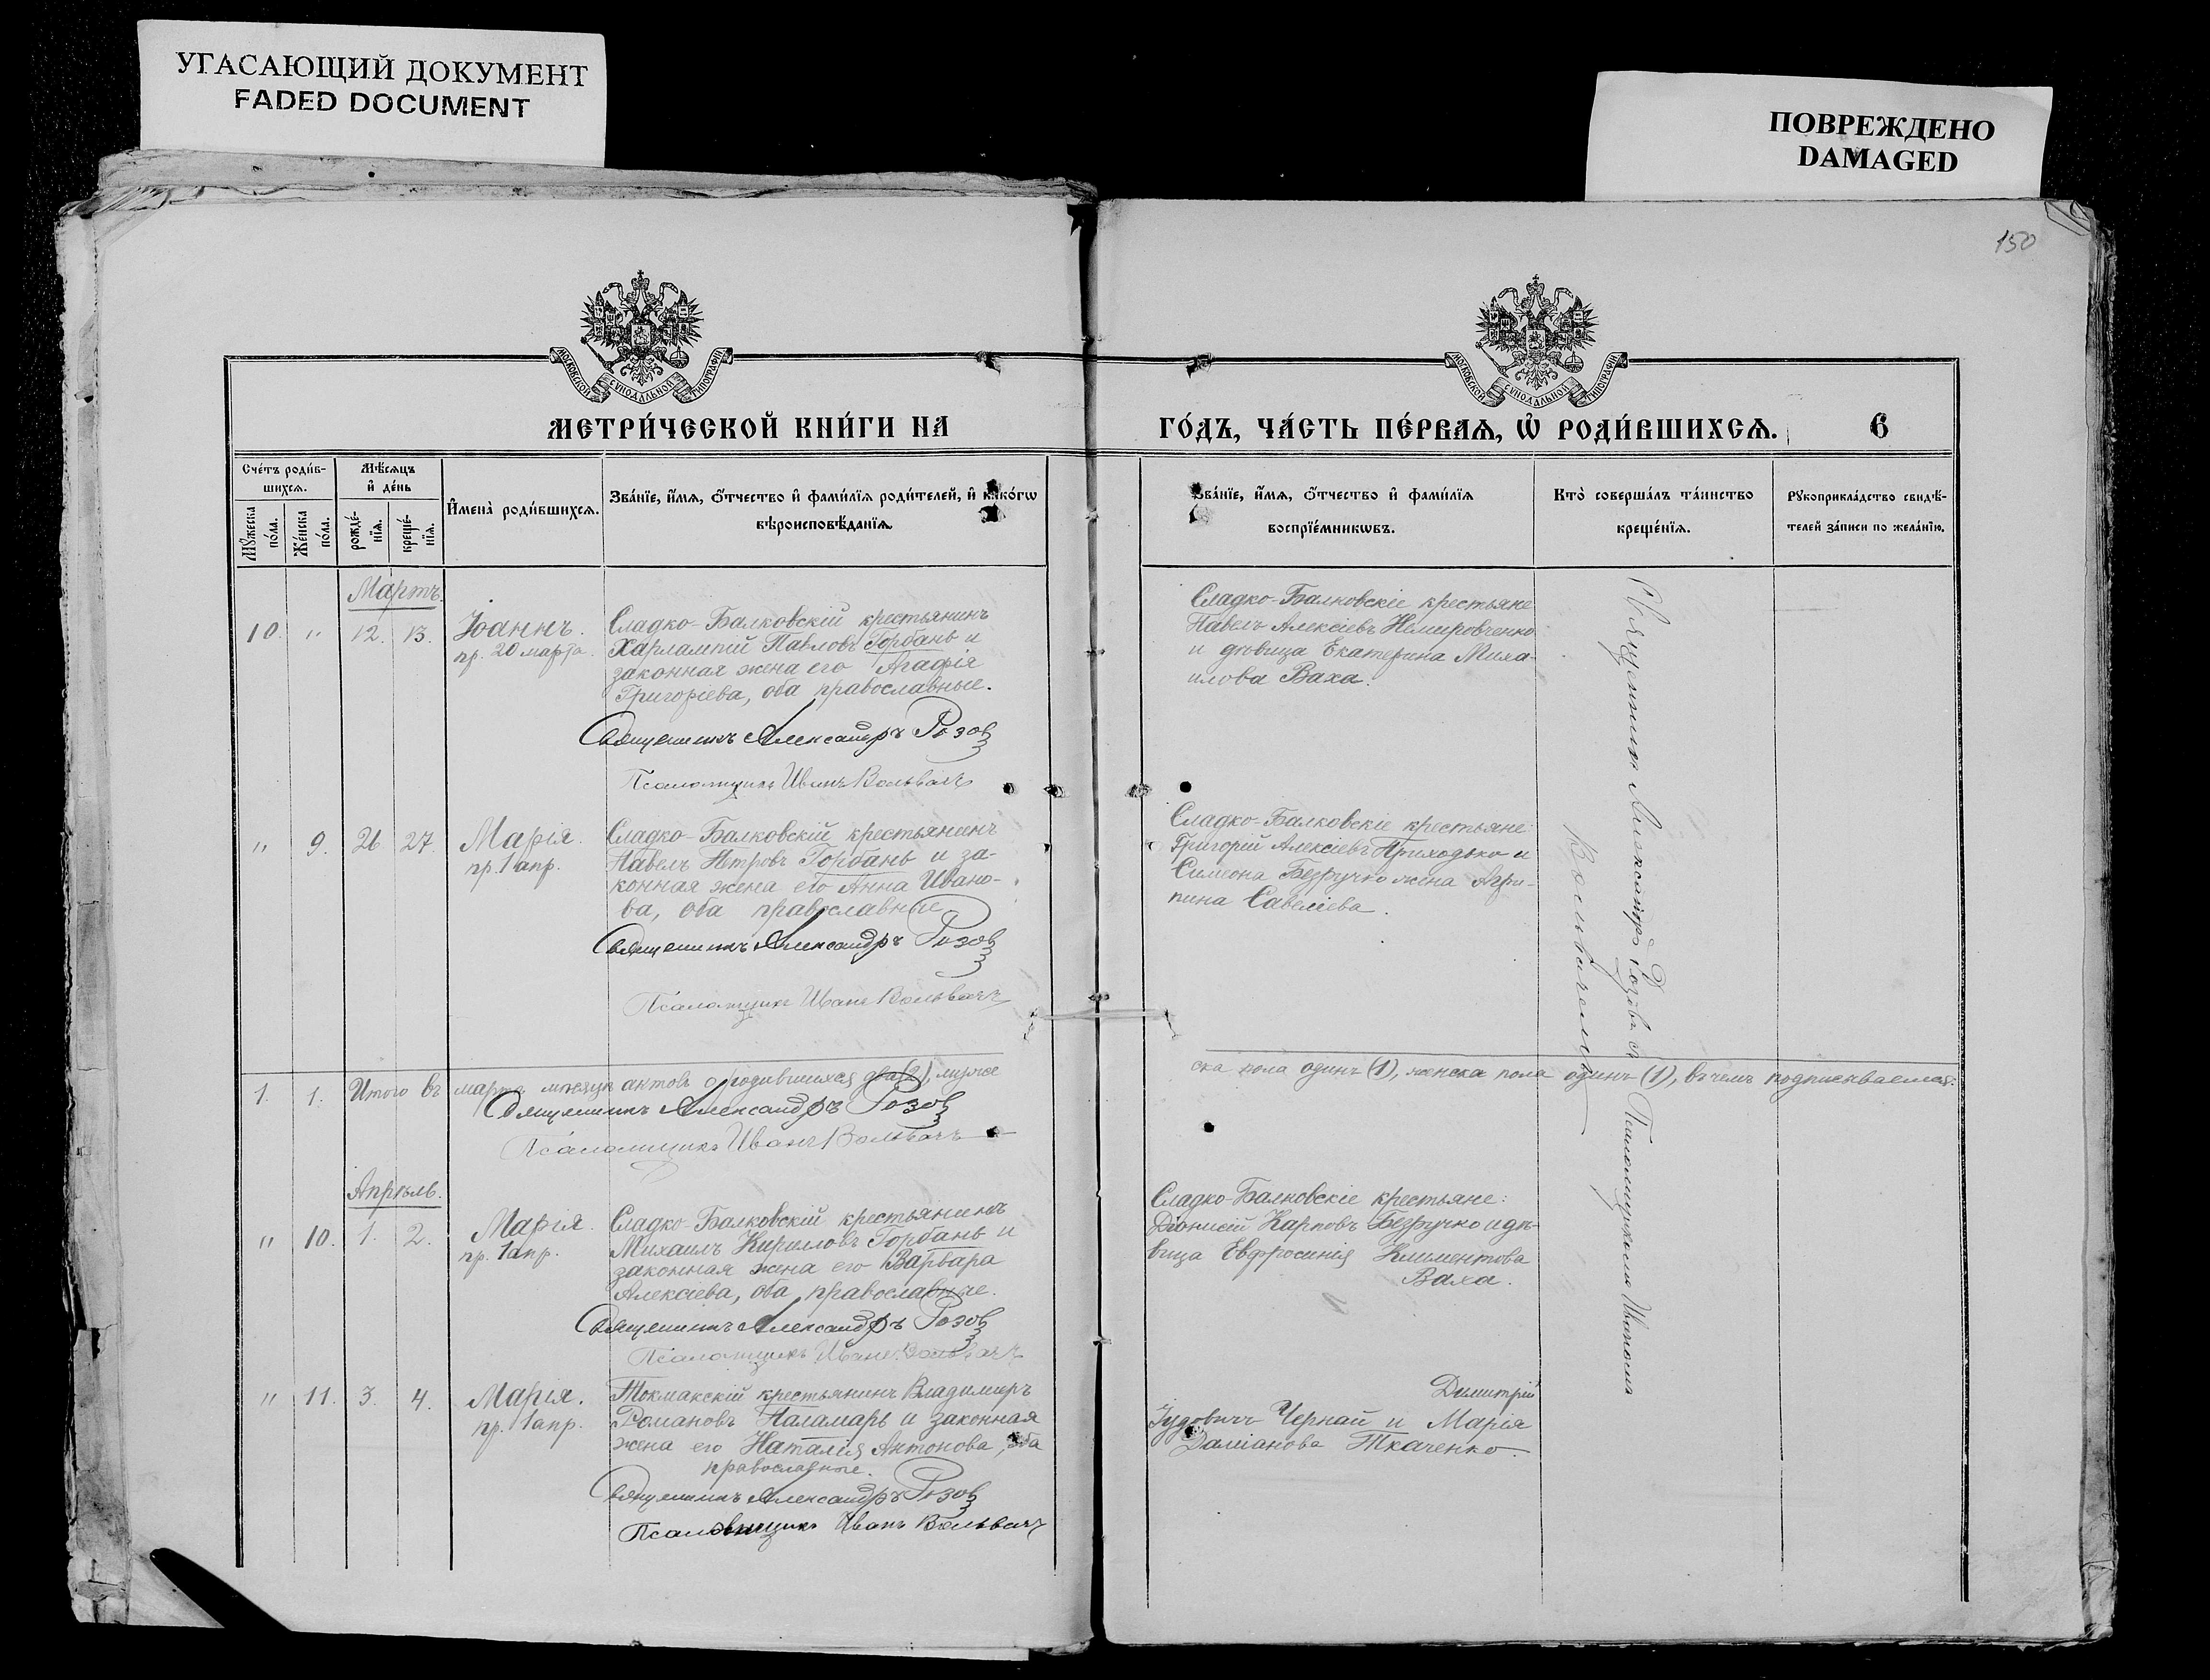 УГАСАЮЩИЙ ДОКУМЕНТ
FADED DOCUMENT
ПОВРЕЖДЕНО
DAMAGED
150
МОСКОВСКОЙ СѴНОДАЛЬНОЙ ТИПОГРАФІИ
МОСКОВСКОЙ СѴНОДАЛЬНОЙ ТИПОГРАФІИ
МЕТРИ́ЧЕСКОЙ КНИ́ГИ НА
ГО́ДЪ, ЧА́СТЬ ПЕ́РВАѦ, Ѡ҆ РОДИ́ВШИХСѦ.
6
Сче́тъ роди́в-
шихсѧ.
Мѣ́сѧцъ
и҆ де́нь
Мꙋ́жеска
по́ла.
Же́нска
по́ла.
рожде́-
нїѧ.
креще́-
нїѧ.
И҆мена̀ роди́вшихсѧ.
Зва́нїе, и҆́мѧ, ѻ҆́тчество и҆ фами́лїѧ роди́телей, и҆ како́гѡ
вѣроисповѣ́данїѧ.
Зва́нїе, и҆́мѧ, ѻ҆́тчество и҆ фами́лїѧ
воспрїе́мникѡвъ.
Кто̀ соверша́лъ та́инство
креще́нїѧ.
Рꙋкоприкла́дство свидѣ́-
телей за́писи по жела́нїю.
Мартъ.
10. " 12. 13. Іоаннъ.
пр. 20 марта.
Сладко-Балковскій крестьянинъ
Харлампій Павловъ Горбань и
законная жена его Агафія
Григоріева, оба православные.
Священникъ Александръ Розов
Псаломщикъ Иванъ Вольвачъ
Сладко-Балковскіе крестьяне
Павелъ Алексіевъ Немировченко
и дѣвица Екатерина Миха-
илова Ваха.
" 9. 26 27. Марія.
пр. 1 апр.
Сладко-Балковскій крестьянинъ
Павелъ Петровъ Горбань и за-
конная жена его Анна Ивано-
ва, оба православные.
Священникъ Александръ Розов
Псаломщикъ Иванъ Вольвачъ
Сладко-Балковскіе крестьяне
Григорій Алексіевъ Приходько и
Симеона Безручко жена Агри-
пина Савеліева.
1. 1. Итого въ мартѣ мѣсяцѣ актовъ о родившихся два (2), муже
ска пола одинъ (1), женска пола одинъ (1), въ чемъ подписываемся:
Священникъ Александръ Розов
Псаломщикъ Иванъ Вольвачъ
Апрѣль.
" 10. 1. 2. Марія.
пр. 1 апр.
Сладко-Балковскій крестьянинъ
Михаилъ Кирилловъ Горбань и
законная жена его Варвара
Алексіева, оба православные.
Священникъ Александръ Розов
Псаломщикъ Иванъ Вольвачъ
Сладко-Балковскіе крестьяне:
Діонисій Карповъ Безручко и дѣ-
вица Евфросинія Климентова
Ваха.
" 11. 3. 4. Марія.
пр. 1 апр.
Токмакскій крестьянинъ Владимиръ
Романовъ Паламарь и законная
жена его Наталія Антонова, оба
православные.
Священникъ Александръ Розов
Псаломщикъ Иванъ Вольвачъ
Димитрій
Іудовичъ Чернай и Марія
Даміанова Ткаченко.
Священникъ Александръ Розовъ съ Псаломщикомъ Иваномъ
Вольвачемъ